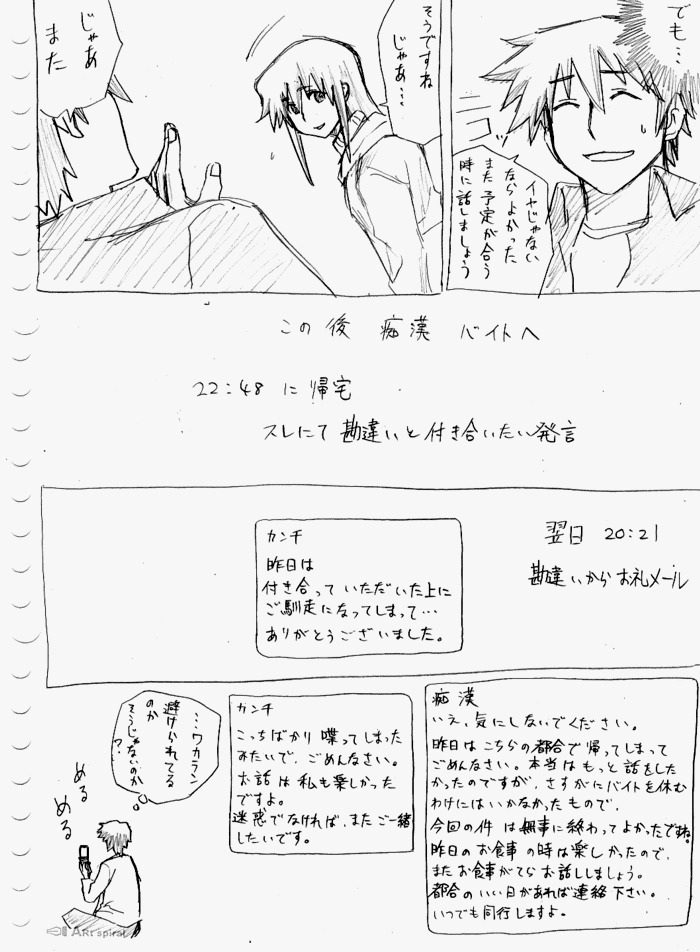 でも…
イヤじゃない
ならよかった
また予定が合う
時に話しましょう
そうですね
じゃあ…
じゃあ
また
この後 痴漢 バイトへ
22:48 に帰宅
スレにて勘違いと付き合いたい発言
翌日 20:21
勘違いからお礼メール
カンチ
昨日は
付き合っていただいた上に
ご馳走になってしまって…
ありがとうございました。
痴漢
いえ、気にしないでください。
昨日はこちらの都合で帰ってしまって
ごめんなさい。本当はもっと話をした
かったのですが、さすがにバイトを休む
わけにはいかなかったもので、
今回の件は無事に終わってよかったですね。
昨日のお食事の時は楽しかったので、
またお食事がてらお話ししましょう。
都合のいい日があれば連絡下さい。
いつでも同行しますよ。
カンチ
こっちばかり喋ってしまった
みたいで、ごめんなさい。
お話は私も楽しかった
ですよ。
迷惑でなければ、またご一緒
したいです。
…ワカラン
避けられてる
のか
そうじゃないのか
?
める
める
ARt spiral